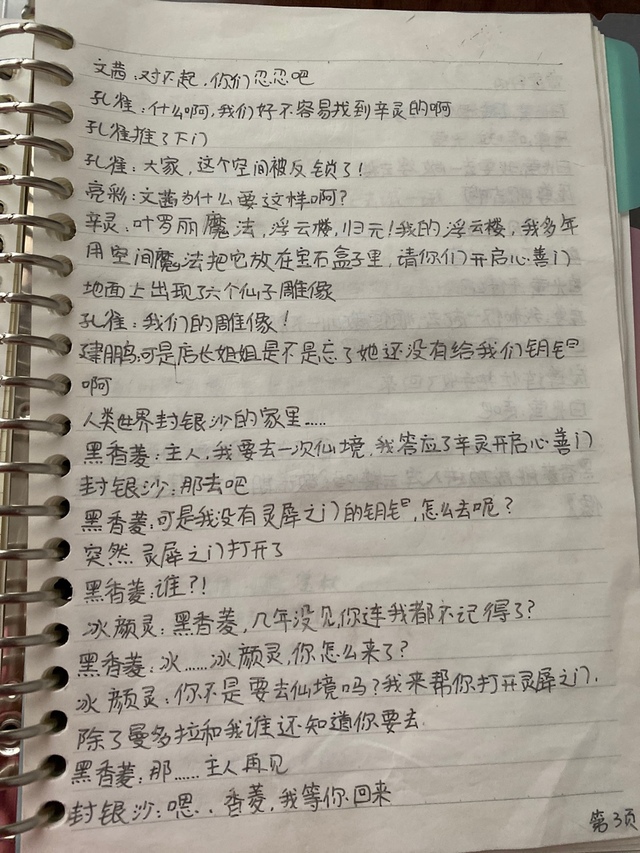 文茜:对不起,你们忍忍吧
孔雀:什么啊,我们好不容易找到辛灵的啊
孔雀推了下门
孔雀:大家,这个空间被反锁了!
亮彩:文茜为什么要这样啊?
辛灵:叶罗丽魔法,浮云楼,归元!我的浮云楼,我多年
用空间魔法把它放在宝石盒子里,请你们开启心善门
地面上出现了六个仙子雕像
孔雀:我们的雕像!
建鹏:可是店长姐姐是不是忘了她还没有给我们钥匙
啊
人类世界封银沙的家里……
黑香菱:主人,我要去一次仙境,我答应了辛灵开启心善门
封银沙:那去吧
黑香菱:可是我没有灵犀之门的钥匙,怎么去呢?
突然 灵犀之门打开了
黑香菱:谁?!
冰颜灵:黑香菱,几年没见,你连我都不记得了?
黑香菱:冰……冰颜灵,你怎么来了?
冰颜灵:你不是要去仙境吗?我来帮你打开灵犀之门.
除了曼多拉和我谁还知道你要去.
黑香菱:那……主人再见
封银沙:嗯..香菱,我等你回来
第3页